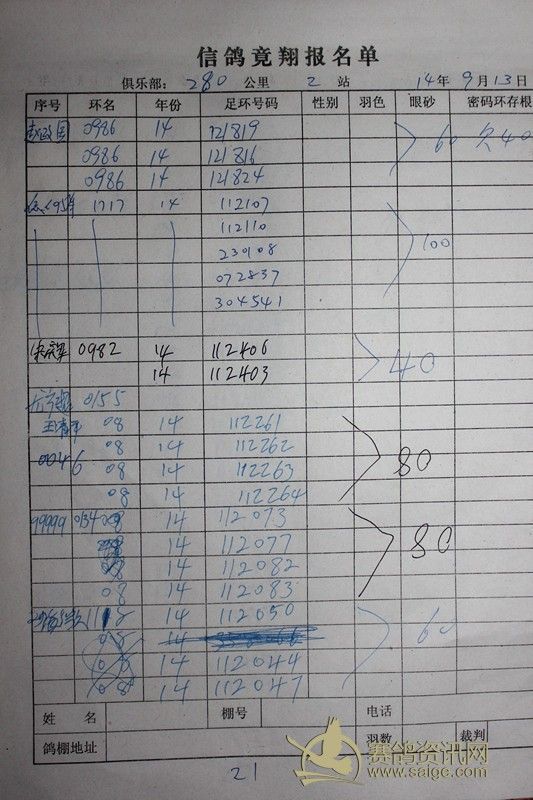 信鸽竟翔报名单
俱乐部: 280 公里 2 站 14 年 9 月 13 日
序号 环名 年份 足环号码 性别 羽色 眼砂 密码环存根
0986 14 121819 60 欠40
0986 14 121816
0986 14 121824
1717 14 112107
112110 100
230108
072837
304541
0982 14 112406 40
14 112403
0155
08 14 112261
08 14 112262
0046 08 14 112263 80
08 14 112264
99999 0134 08 14 112073
14 112077 80
08 14 112082
08 14 112083
14 112050 60
05 14
05 14 112044
08 14 112047
姓名 棚号 电话
鸽棚地址 羽数 裁判
21
赛鸽资讯网
www.saige.com